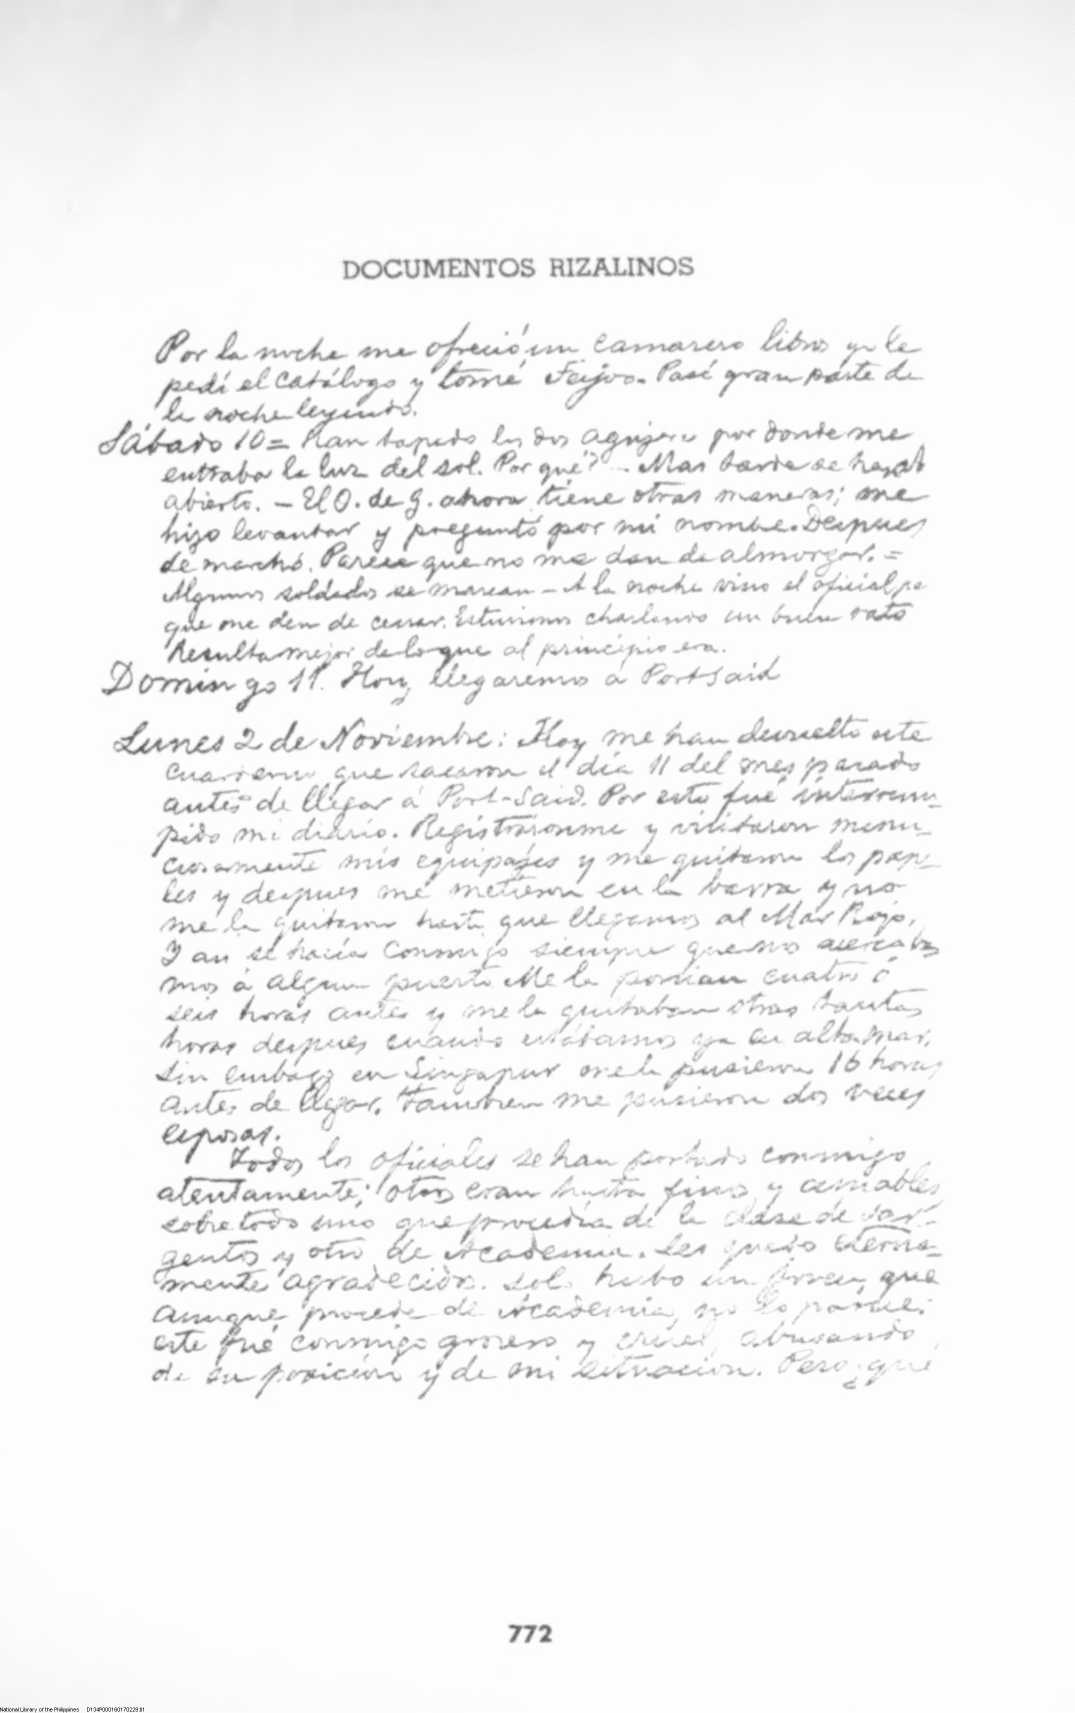 DOCUMENTOS RIZALINOS
Por la noche me ofreció un camarero libros yo le
pedí el catálogo y tomé Feijoo. Pasé gran parte de
la noche leyendo.
Sábado 10 = Han tapado los dos agujeros por donde me
entraba la luz del sol. Por qué? — Mas tarde se han
abierto. — El O. de G. ahora tiene otras maneras; me
hizo levantar y preguntó por mi nombre. Despues
se marchó. Parece que no me dan de almorzar. =
Algunos soldados se marean — A la noche vino el oficial pa
que me den de cenar. Estuvimos charlando un buen rato
Resulta mejor de lo que al principio era.
Domingo 11. Hoy llegaremos a Port Said
Lunes 2 de Noviembre: Hoy me han devuelto este
cuaderno que sacaron el día 11 del mes pasado
antes de llegar á Port-Said. Por esto fué interrum-
pido mi diario. Registráronme y visitaron minu-
ciosamente mis equipajes y me quitaron los pape-
les y despues me metieron en la barra y no
me la quitaron hasta que llegamos al Mar Rojo.
Y asi se hacía conmigo siempre que nos acercaba
mos á algun puerto Me la ponian cuatro ó
seis horas antes y me la quitaban otras tantas
horas despues cuando estábamos ya en alta mar.
Sin embargo en Singapur me la pusieron 16 horas
antes de llegar. Tambien me pusieron dos veces
esposas.
Todos los oficiales se han portado conmigo
atentamente; otros eran hasta finos y amables
sobre todo uno que procedía de la clase de sar-
gentos y otro de Academia. Les quedo eterna-
mente agradecido. Solo hubo un joven, que
aunque procede de Academia, no lo parece:
este fué conmigo grosero y cruel, abusando
de su posición y de mi situacion. Pero ¿qué
772
National Library of the Philippines